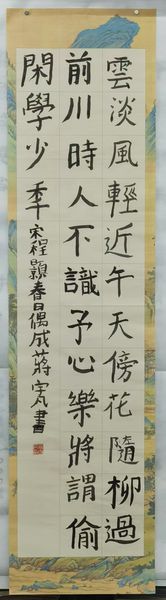 雲淡風輕近午天傍花隨柳過
前川時人不識予心樂將謂偷
閑學少年宋程顥春日偶成蔣宇凡書